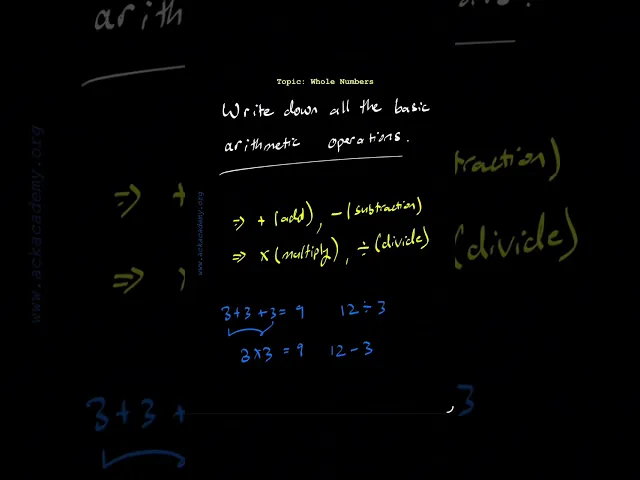 Topic: Whole Numbers
Write down all the basic
arithmetic operations.
www.ackacademy.org
⇒ + (add), - (subtraction)
⇒ × (multiply), ÷ (divide)
3+3+3=9 12÷3
3×3=9 12-3